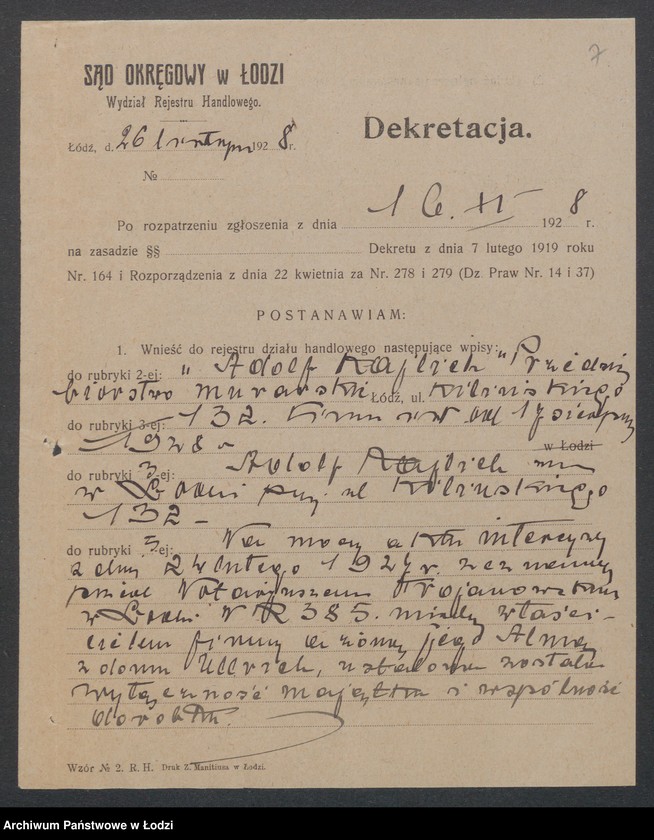 7
SĄD OKRĘGOWY w ŁODZI
Wydział Rejestru Handlowego.
Łódź, d. 26 listopada 1928 r.
Dekretacja.
№
Po rozpatrzeniu zgłoszenia z dnia 16. XI 1928 r.
na zasadzie §§ Dekretu z dnia 7 lutego 1919 roku
Nr. 164 i Rozporządzenia z dnia 22 kwietnia za Nr. 278 i 279 (Dz. Praw Nr. 14 i 37)
POSTANAWIAM:
1. Wnieść do rejestru działu handlowego następujące wpisy:
do rubryki 2-ej: „Adolf Kajlich" Przedsię
biorstwo murarskie Łódź, ul. Kilińskiego
do rubryki 3-ej: 132. Firma istn. od 17 sierpnia
1928 w Łodzi
do rubryki 3-ej: Adolf Kajlich
w Łodzi przy ul Kilińskiego
132 -
do rubryki 5-ej: Na mocy aktu intercyzy
z dnia 24 lutego 1927 r. zeznanej
przed Notarjuszem Trojanowskim
w Łodzi N R 385. między właści-
cielem firmy a żoną jego Almą
z domu Ullrich, ustalona została
wyłączność majątku i wspólność
dorobku.
Wzór № 2. R. H. Druk Z. Manitiusa w Łodzi.
Archiwum Państwowe w Łodzi